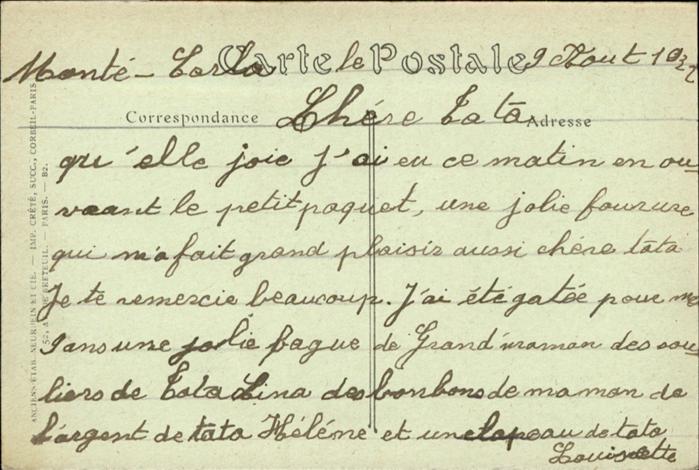 Carte Postale
Monté-Carlo le 9 Aout 1932
Correspondance
Adresse
Chére Tata
qu'elle joie j'ai eu ce matin en ou-
vrant le petit paquet, une jolie fourure
qui m'a fait grand plaisir aussi chére tata
Je te remercie beaucoup. J'ai été gatée pour me
9 ans une jolie bague de Grand'maman des sou-
liers de Tata Lina des bonbons de maman de
l'argent de tata Héléne et un chapeau de tata
Louisette
ANCIENS ÉTAB. NEURDEIN ET CIE. — IMP. CRÉTÉ, SUCC., CORBEIL-PARIS
52, AV. DE BRETEUIL. — PARIS. — B2.